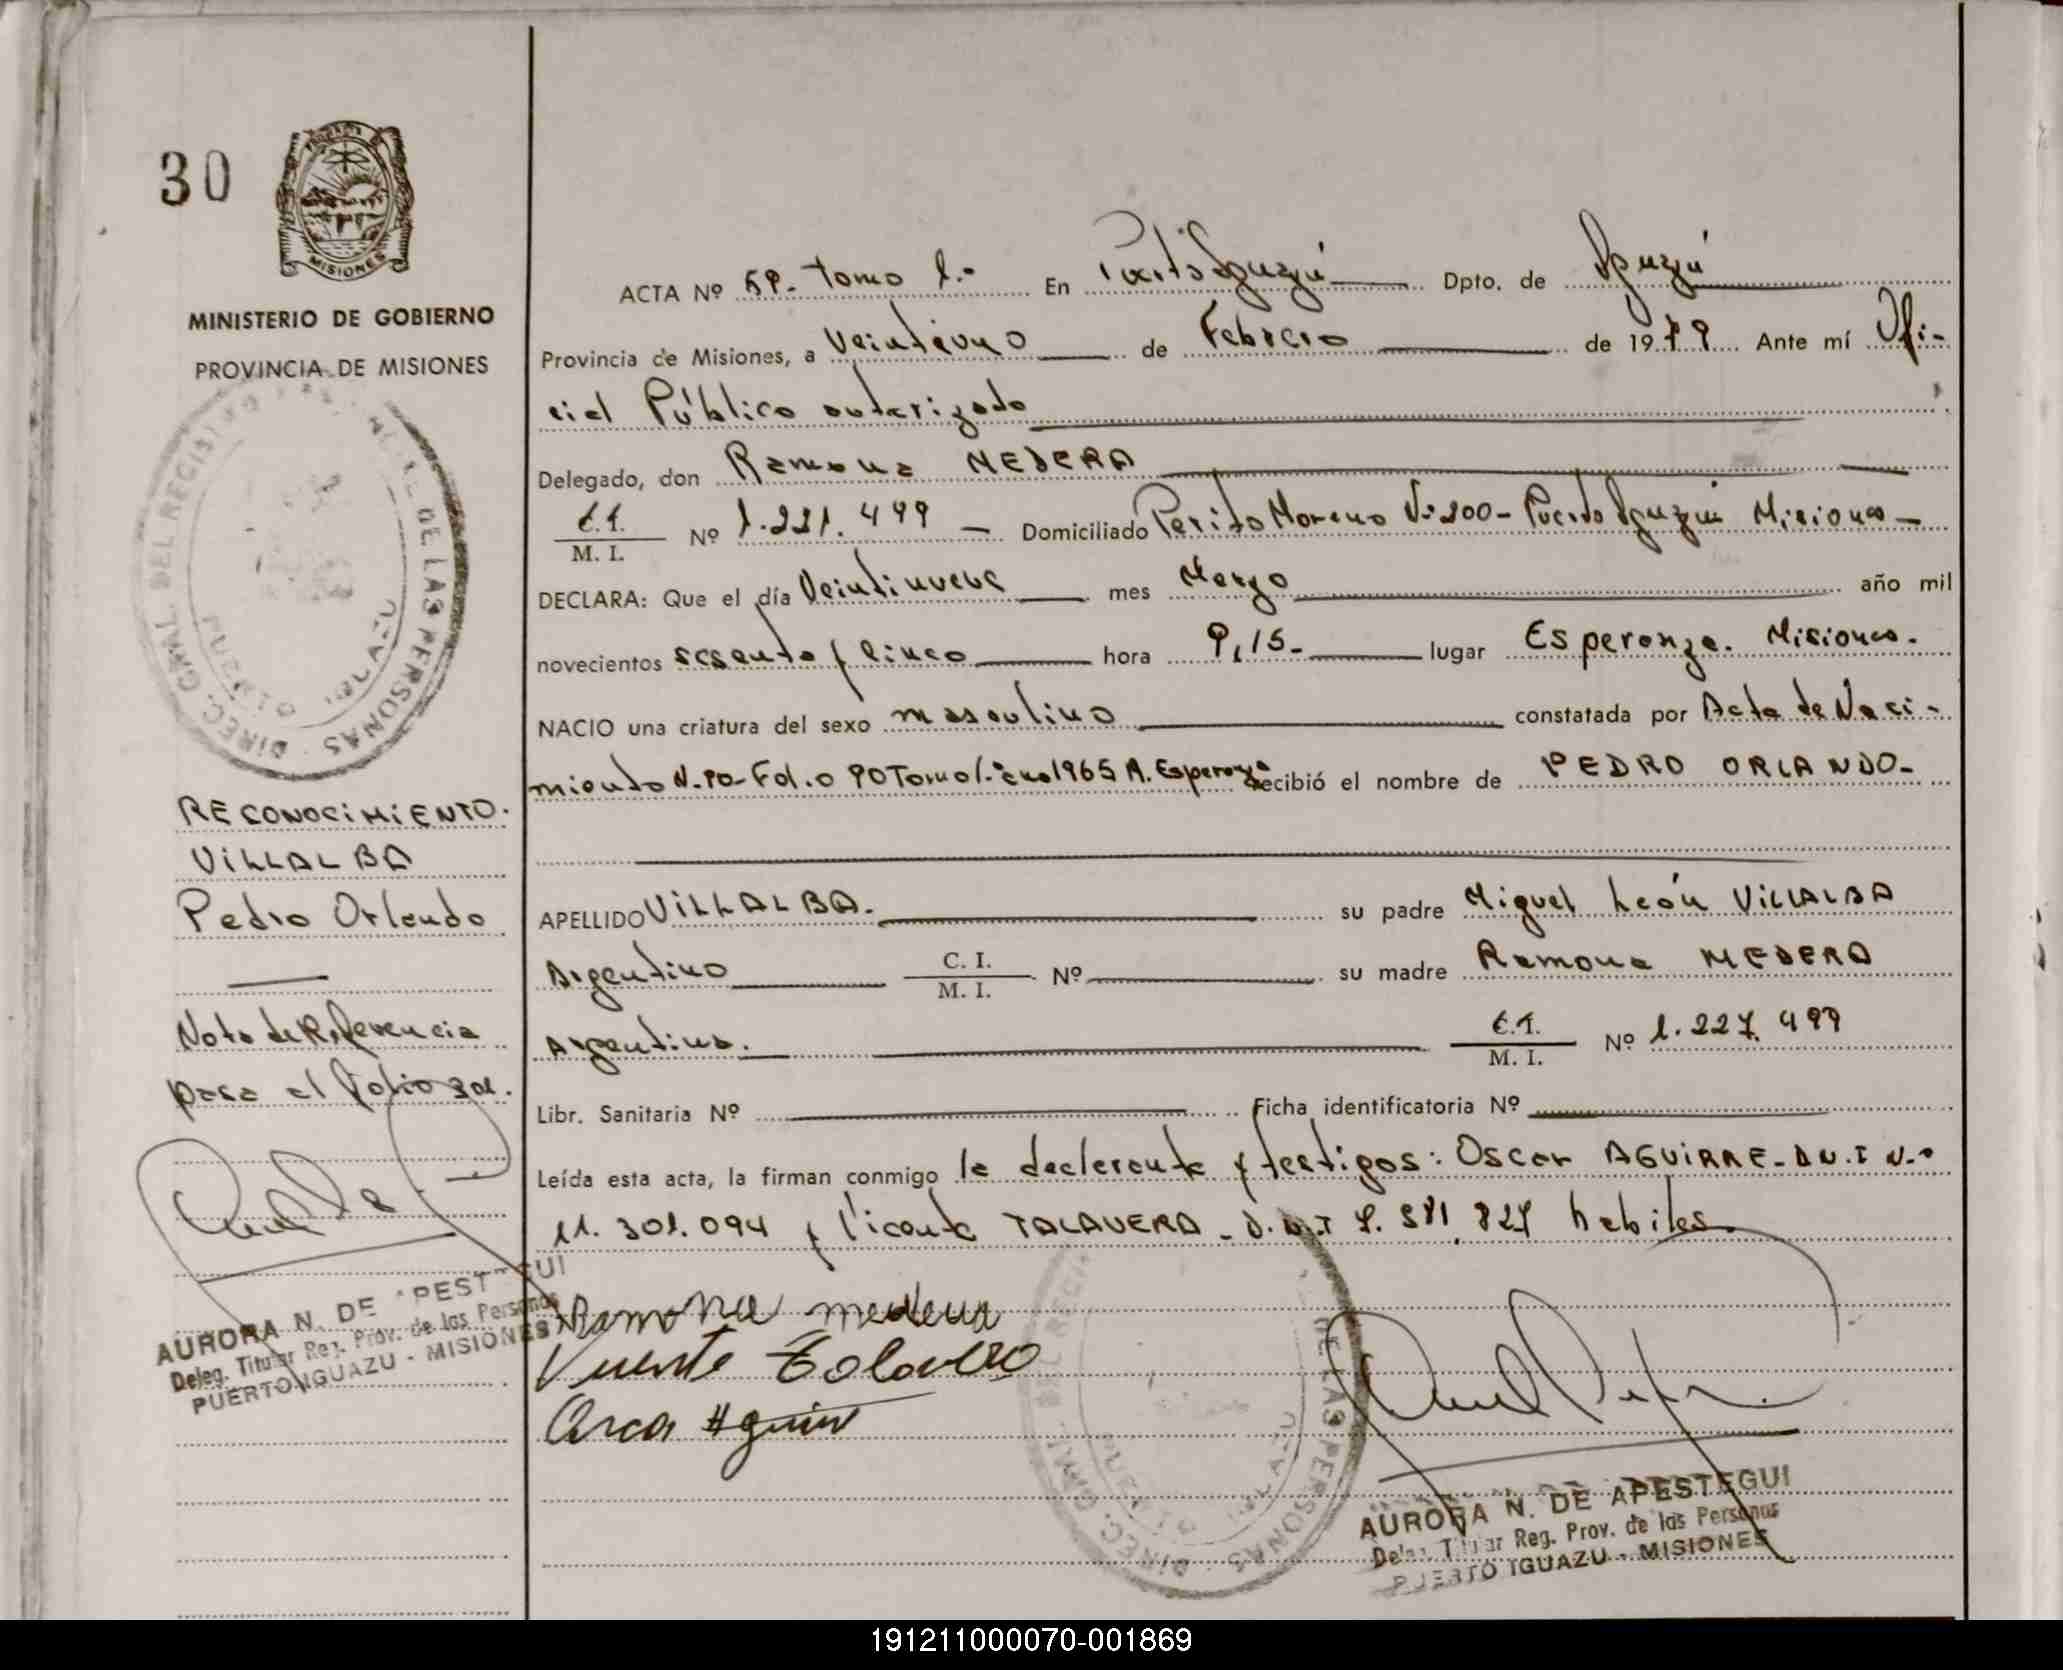 30
MISIONES
MINISTERIO DE GOBIERNO
PROVINCIA DE MISIONES
DIREC. GRAL. DEL REGISTRO DE LAS PERSONAS
RECONOCIMIENTO.
VILLALBA
Pedro Orlando
Nota de Referencia
pasa al Folio 301.
AURORA N. DE APESTEGUI
Deleg. Titular Reg. Prov. de las Personas
PUERTO IGUAZU - MISIONES
ACTA Nº 59- Tomo 1.- En Puerto Iguazú Dpto. de Iguazú
Provincia de Misiones, a Veintiuno de Febrero de 1979 Ante mí Ofi-
cial Público autorizado
Delegado, don Ramona MEDERA
C.I. M. I. Nº 1.221.499 - Domiciliado Perito Moreno Nº 200 - Puerto Iguazú Misiones -
DECLARA: Que el día Veintinueve mes Marzo año mil
novecientos sesenta y cinco hora 9,15- lugar Esperanza. Misiones.
NACIO una criatura del sexo masculino constatada por Acta de Naci-
miento N. 90- Fol. o 90 Tomo 1.- año 1965 A. Esperanza recibió el nombre de PEDRO ORLANDO-
APELLIDO VILLALBA. su padre Miguel León VILLALBA
Argentino C. I. M. I. Nº su madre Ramona MEDERA
Argentina. C.I. M. I. Nº 1.227.499
Libr. Sanitaria Nº Ficha identificatoria Nº
Leída esta acta, la firman conmigo la declarante y testigos: Oscar AGUIRRE - D.N.I N.º
11.301.094 y Vicente TALAVERA - D.N.I 7.581.827 habiles.
Ramona medera
Vicente Talavera
Oscar Aguirre
DIREC. GRAL. DEL REGI DE LAS PERSONAS
AURORA N. DE APESTEGUI
Deleg. Titular Reg. Prov. de las Personas
PUERTO IGUAZU - MISIONES
191211000070-001869